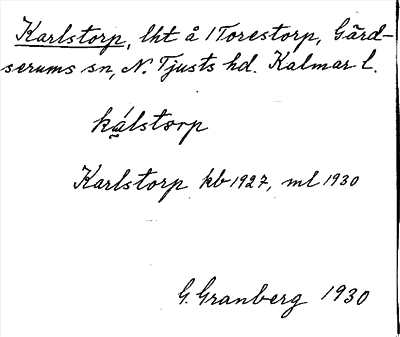 Karlstorp, lht å 1 Torestorp, Gärd-
serums sn, N. Tjusts hd. Kalmar l.
kálstorp
Karlstorp kb 1927, ml 1930
G. Granberg 1930